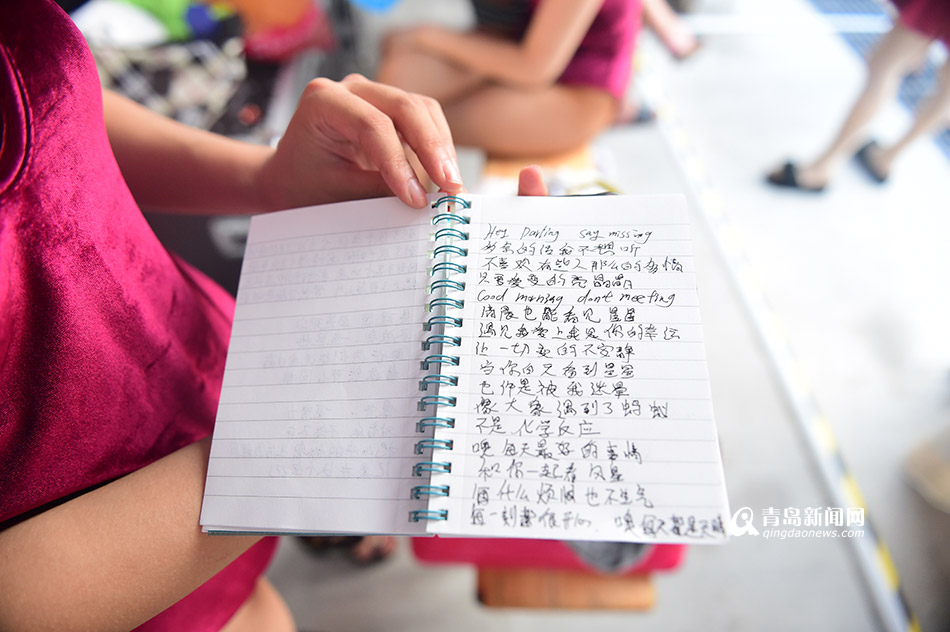 Hey Darling say missing
多余的话 不想听
不喜欢 在些人那么的多情
只要 的亮晶晶
Good morning dont meeting
清晨也能看见星星
遇见 爱上我是你的幸运
让一切变的不安静
当你 看到星星
也许是被我迷晕
像大象遇到了蚂蚁
不是化学反应
噢 每天最好的事情
和你一起看风景
有什么烦恼也不生气
每一刻都很开心 噢 每天都是
青岛新闻网
qingdaonews.com